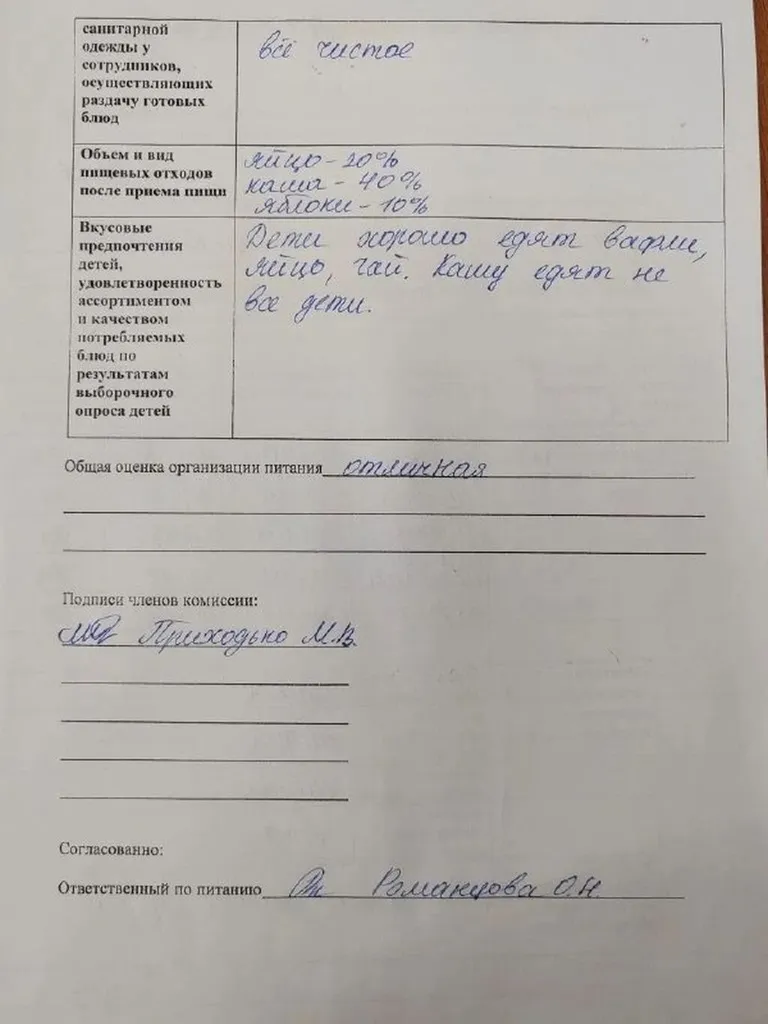 санитарной
одежды у
сотрудников,
осуществляющих
раздачу готовых
блюд
всё чистое
Объем и вид
пищевых отходов
после приема пищи
яйцо - 20%
каша - 40%
яблоки - 10%
Вкусовые
предпочтения
детей,
удовлетворенность
ассортиментом
и качеством
потребляемых
блюд по
результатам
выборочного
опроса детей
Дети хорошо едят вафли,
яйцо, чай. Кашу едят не
все дети.
Общая оценка организации питания отличная
Подписи членов комиссии:
Приходько М.В.
Согласованно:
Ответственный по питанию Романцова О.Н.